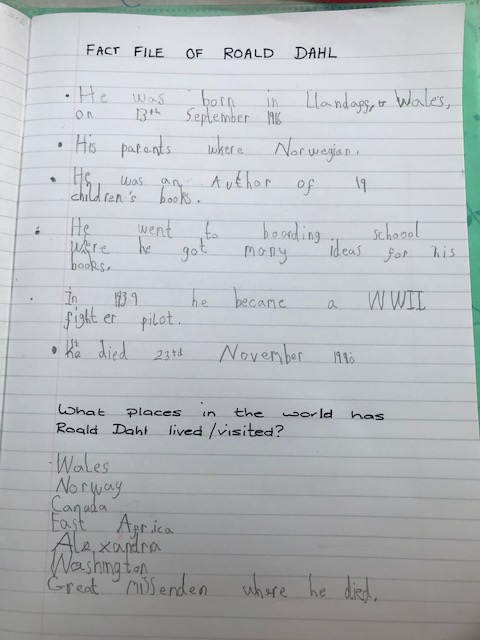 FACT FILE OF ROALD DAHL
• He was born in Llandaff, Wales,
on 13th September 1916
• His parents where Norwegian.
• He was an Author of 19
children's books.
• He went to boarding schoool
where he got many ideas for his
books.
• In 1939 he became a WWII
fighter pilot.
• He died 23rd November 1990
What places in the world has
Roald Dahl lived/visited?
Wales
Norway
Canada
East Africa
Alexandra
Washington
Great Missenden where he died.